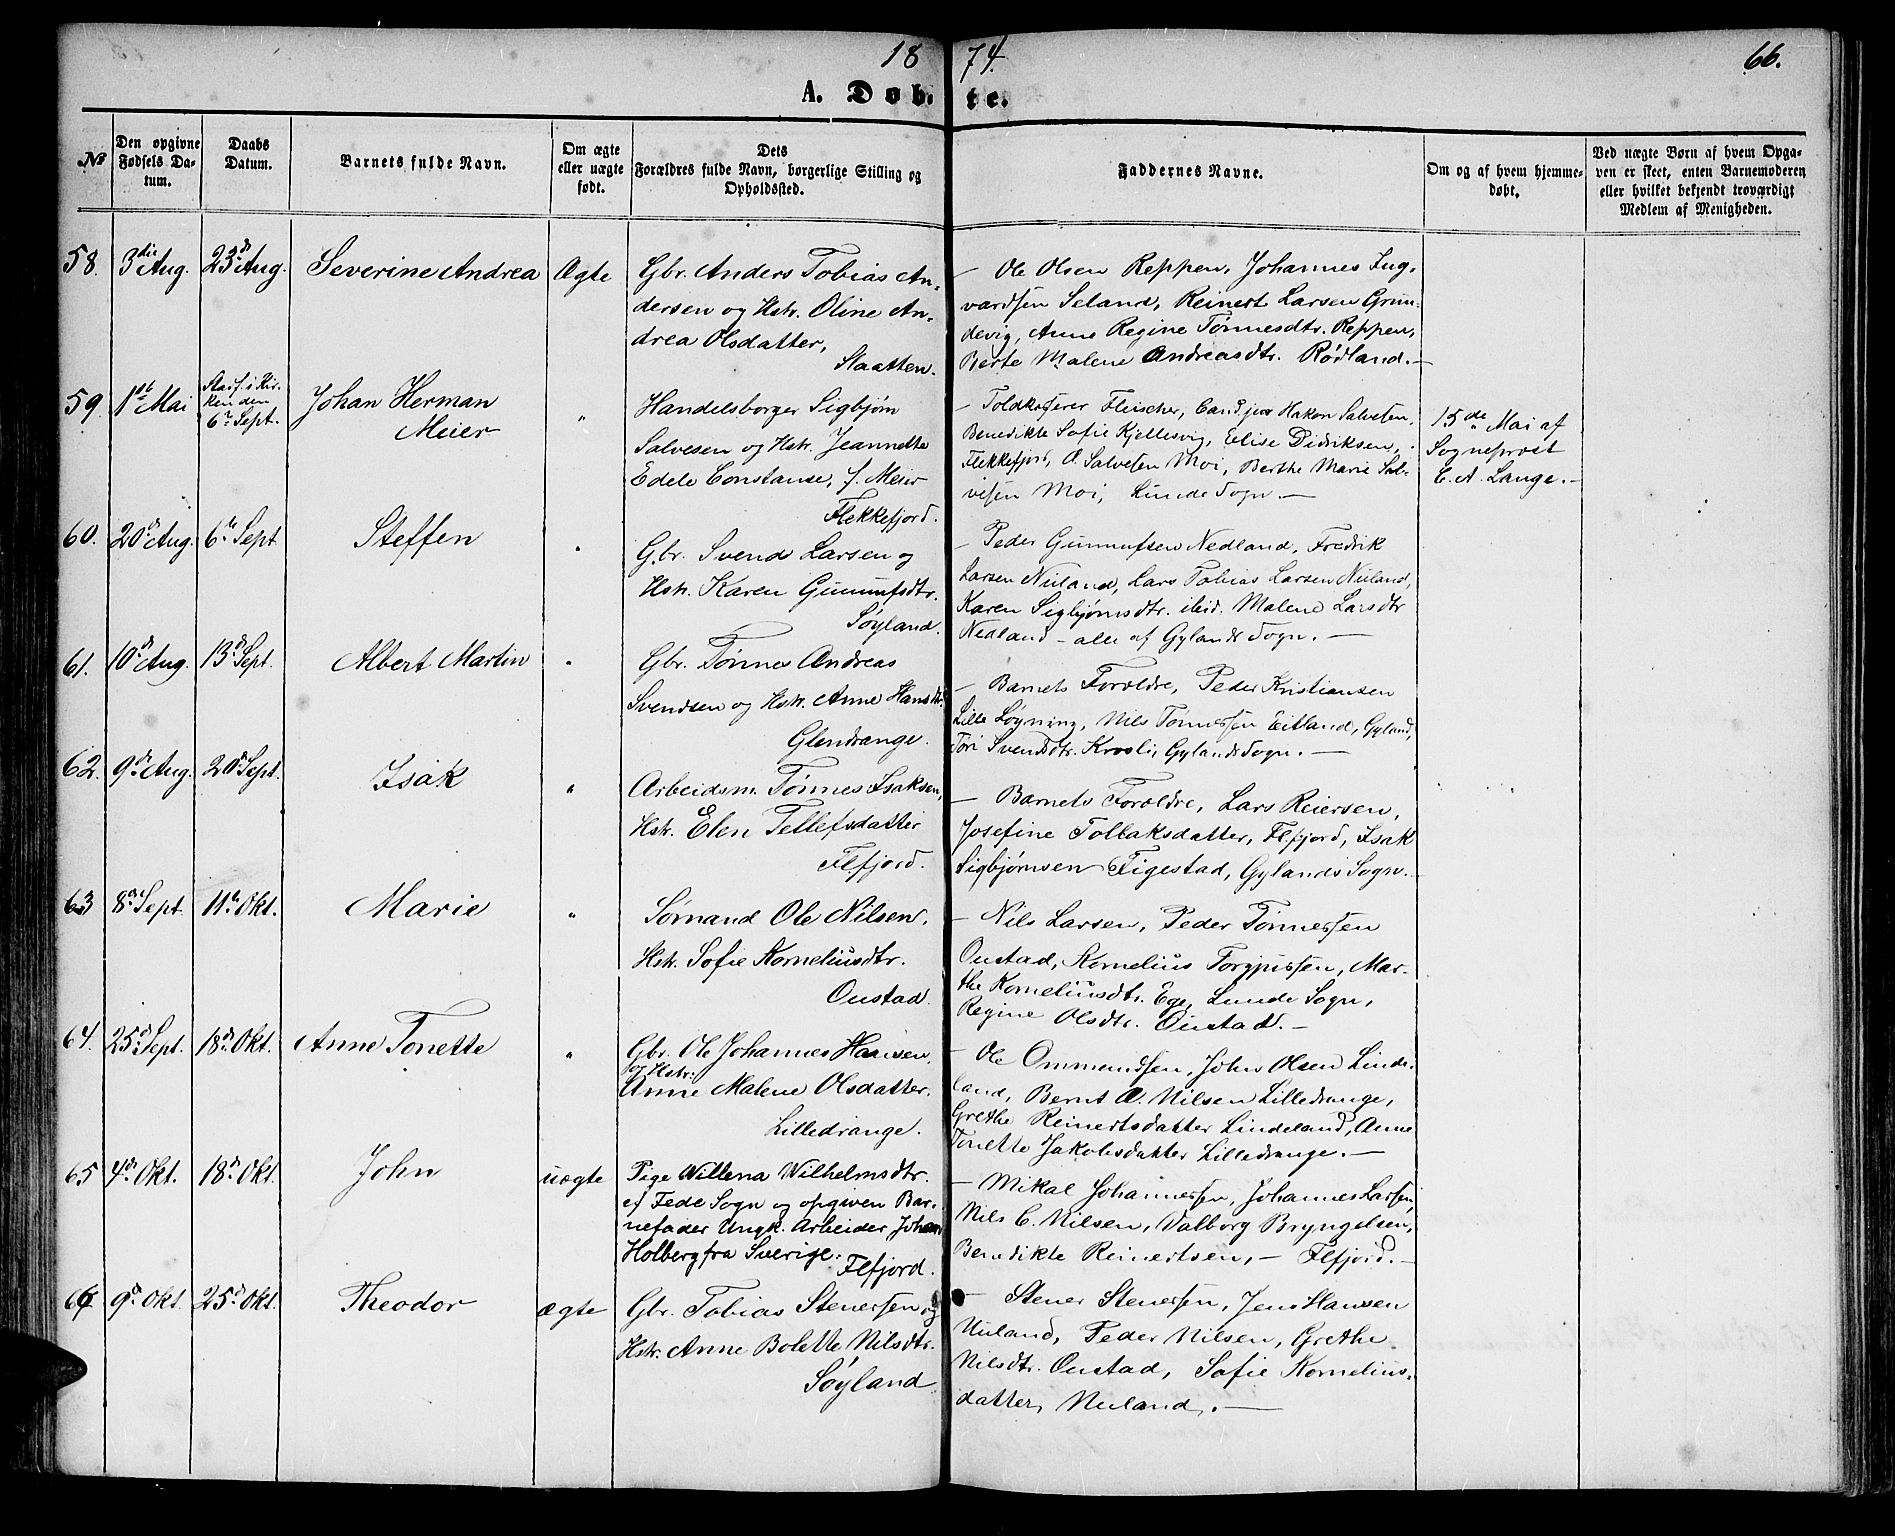 18 74. 66.
A. Døb- te.
No
Den opgivne Fødsels Da- tum.
Daabs Datum.
Barnets fulde Navn.
Om ægte eller uægte født.
Dets Forældres fulde Navn, borgerlige Stilling og Opholdssted.
Faddernes Navne.
Om og af hvem hjemme- døbt.
Ved uægte Børn af hvem Opga- ven er skeet, enten Barnemoderen eller hvilket bekjendt troværdigt Medlem af Menigheden.
58. 3die Aug. 23d Aug. Severine Andrea Ægte
Gbr. Anders Tobias An-
dersen og Hstr. Oline An-
drea Olsdatter,
Staatten.
- Ole Olsen Reppen, Johannes Ing-
vardsen Seland, Reinert Larsen Grun-
devig, Anne Regine Tønnesdtr. Reppen,
Berte Malene Andreasdtr. Rødland.-
59. 1st Mai Stadf. i Kir-
ken den
6te Sept.
Johan Herman
Meier "
Handelsborger Sigbjørn
Salvesen og Hstr. Jeannette
Edele Constanse, f. Meier
Flekkefjord.
- Toldkasserer Fleischer, Cand jur Hakon Salvesen,
Benedikte Sofie Kjellesvig, Elise Didriksen,
Flekkefjord, O. Salvesen Moi, Berthe Marie Sal-
vesen Moi, Lunde Sogn.-
15de Mai af
Sogneprost
C. A. Lange.-
60. 20d Aug. 6te Sept Steffen "
Gbr. Svend Larsen og
Hstr. Karen Gunnufsdtr.
Søyland.
- Peder Gunnufsen Nedland, Fredrik
Larsen Nuland, Lars Tobias Larsen Nuland,
Karen Sigbjørnsdtr. ibid. Malene Larsdtr
Nedland - alle af Gylands Sogn.-
61. 10d Aug. 13d Sept. Albert Martin "
Gbr. Tønnes Andreas
Svendsen og Hstr. Anne Hansdtr.
Glendrange.
- Barnets Forældre, Peder Kristiansen
Lille Løgning, Nils Tønnessen Eitland, Gyland,
Tori Svendsdtr. Krosli, Gylands Sogn.-
62. 9d Aug. 20d Sept. Isak "
Arbeidsm. Tønnes Isaksen,
Hstr. Elen Tellefsdatter
Flfjord.
- Barnets Forældre, Lars Reiersen,
Josefine Tollaksdatter, Flfjord, Isak
Sigbjørnsen Figestad, Gylands Sogn.-
63 8de Sept. 11te Okt. Marie "
Sømand Ole Nilsen,
Hstr. Sofie Korneliusdtr.
Oustad.
- Nils Larsen, Peder Tønnessen
Oustad, Kornelius Torgjussen, Mar-
the Korneliusdtr. Ege, Lunde Sogn,
Regine Olsdtr. Oustad.-
64. 25d Sept. 18d Okt. Anne Tonette "
Gbr. Ole Johannes Hansen,
og Hstr:
Anne Malene Olsdatter.
Lilledrange.
- Ole Ommundsen, John Olsen Linde-
land, Bernt A. Nilsen Lilledrange,
Grethe Reinertsdatter Lindeland, Anne
Tonette Jakobsdatter Lilledrange.-
65 4d Okt. 18d Okt. John uægte
Pige Willena Wilhelmsdtr.
af Fede Sogn og opgiven Bar-
nefader Ungk. Arbeider Johan
Holberg fra Sverige.
Flfjord.
- Mikal Johannessen, Johannes Larsen,
Nils C. Nilsen, Valborg Bryngelsen,
Benedikte Reinertsen, - Flfjord.-
66 9d Okt. 25d Okt. Theodor ægte
Gbr. Tobias Stenersen og
Hstr. Anne Bolette Nilsdtr.
Søyland
- Stener Stenersen, Jens Hansen
Nuland, Peder Nilsen, Grethe
Nilsdtr. Oustad, Sofie Kornelius-
datter, Nuland.-